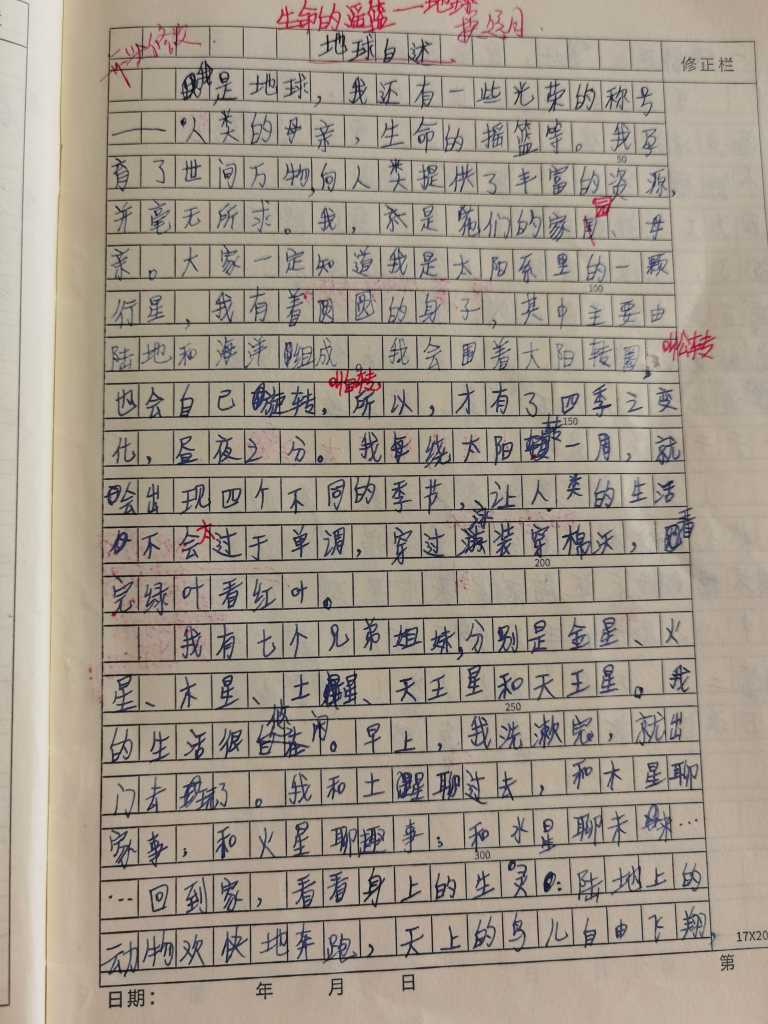 生命的摇篮——地球
地球自述
修正栏
我是地球，我还有一些光荣的称号
——人类的母亲，生命的摇篮等。我孕
50
育了世间万物，向人类提供了丰富的资源，
并毫无所求。我，就是他们的家园、母
亲。大家一定知道我是太阳系里的一颗
100
行星，我有着圆圆的身子，其中主要由
陆地和海洋组成。我会围着太阳转圈，叫公转
也会自己旋转，叫自转 所以，才有了四季之变
150
化，昼夜之分。我每绕太阳转一周，就
会出现四个不同的季节，让人类的生活
不会太过于单调，穿过泳装穿棉沃，看
200
完绿叶看红叶。
我有七个兄弟姐妹，分别是金星、火
星、木星、土星、天王星和天王星。我
250
的生活很悠闲。早上，我洗漱完，就出
门去玩了。我和土星聊过去，和木星聊
家事；和火星聊趣事；和水星聊未来…
300
…回到家，看看身上的生灵：陆地上的
动物欢快地奔跑，天上的鸟儿自由飞翔，
17X20
日期： 年 月 日 第